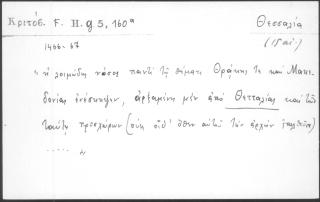 Κριτόβ. F. H. g 5, 160ª
Θεσσαλία
(15 αἰ.)
1466-67
"ἡ λοιμώδης νόσος παντὶ τῷ θέματι Θρᾴκης τε καὶ Μακε-
δονίας ἐνέσκηψεν, ἀρξαμένη μὲν ἀπὸ Θετταλίας καὶ τῶν
ταύτῃ προσχώρων (οὐκ οἶδ' ὅθεν αὐτοῦ τὴν ἀρχὴν
..... "